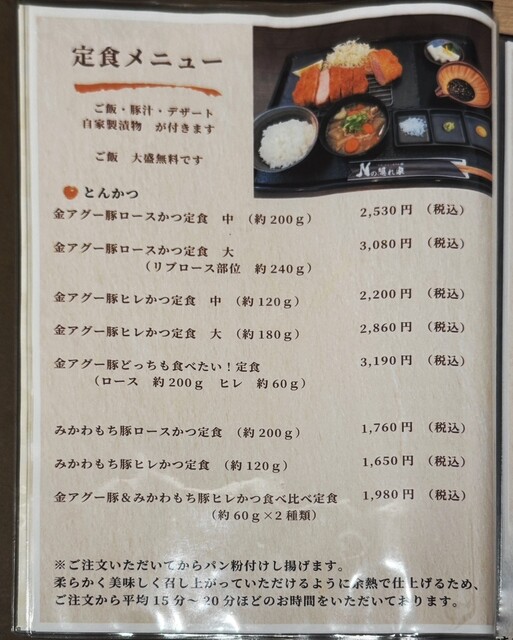 定食メニュー
ご飯・豚汁・デザート
自家製漬物　が付きます
ご飯　大盛無料です
とんかつ
金アグー豚ロースかつ定食　中　（約200ｇ）　2,530円　（税込）
金アグー豚ロースかつ定食　大　3,080円　（税込）
（リブロース部位　約240ｇ）
金アグー豚ヒレかつ定食　中　（約120ｇ）　2,200円　（税込）
金アグー豚ヒレかつ定食　大　（約180ｇ）　2,860円　（税込）
金アグー豚どっちも食べたい！定食　3,190円　（税込）
（ロース　約200ｇ　ヒレ　約60ｇ）
みかわもち豚ロースかつ定食　（約200ｇ）　1,760円　（税込）
みかわもち豚ヒレかつ定食　（約120ｇ）　1,650円　（税込）
金アグー豚＆みかわもち豚ヒレかつ食べ比べ定食　1,980円　（税込）
（約60ｇ×2種類）
※ご注文いただいてからパン粉付けし揚げます。
柔らかく美味しく召し上がっていただけるように余熱で仕上げるため、
ご注文から平均15分～20分ほどのお時間をいただいております。